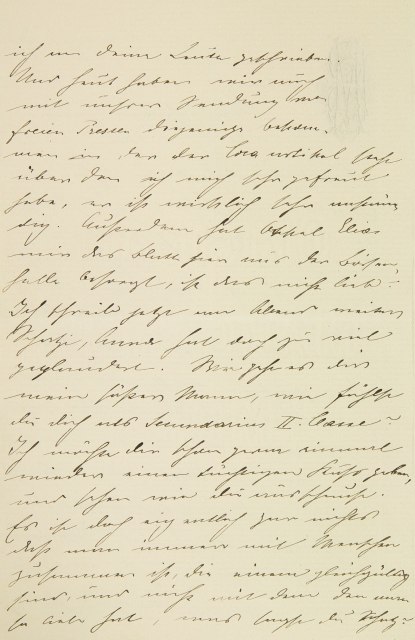 ich an deine Leute geschrieben.
Und heut haben wir auch
mit unsrer Sendung der
freien Presse diejenige bekom-
men in der der Localartikel steht
über den ich mich sehr gefreut
habe, er ist wirklich sehr anstän-
dig. Außerdem hat Onkel Elias
mir das Blatt hier aus der Lesen-
halle besorgt, ist das nicht lieb?
Ich schreib jetzt am Abend weiter
Schatzi, hat doch zu viel
geplaudert. Wie geht es dir
mein süßer Mann, wie fühlst
du dich als Secundarius II. Classe?
Ich möchte dir schon gern einmal
wieder einen tüchtigen Kuß geben,
und sehen wie du ausschaust.
Es ist doch eigentlich zu nichts
daß man immer mit Menschen
zusammen ist, die einem gleichgültig
sind, und nicht mit dem den man
so lieb hat, was sagst du Schatz?